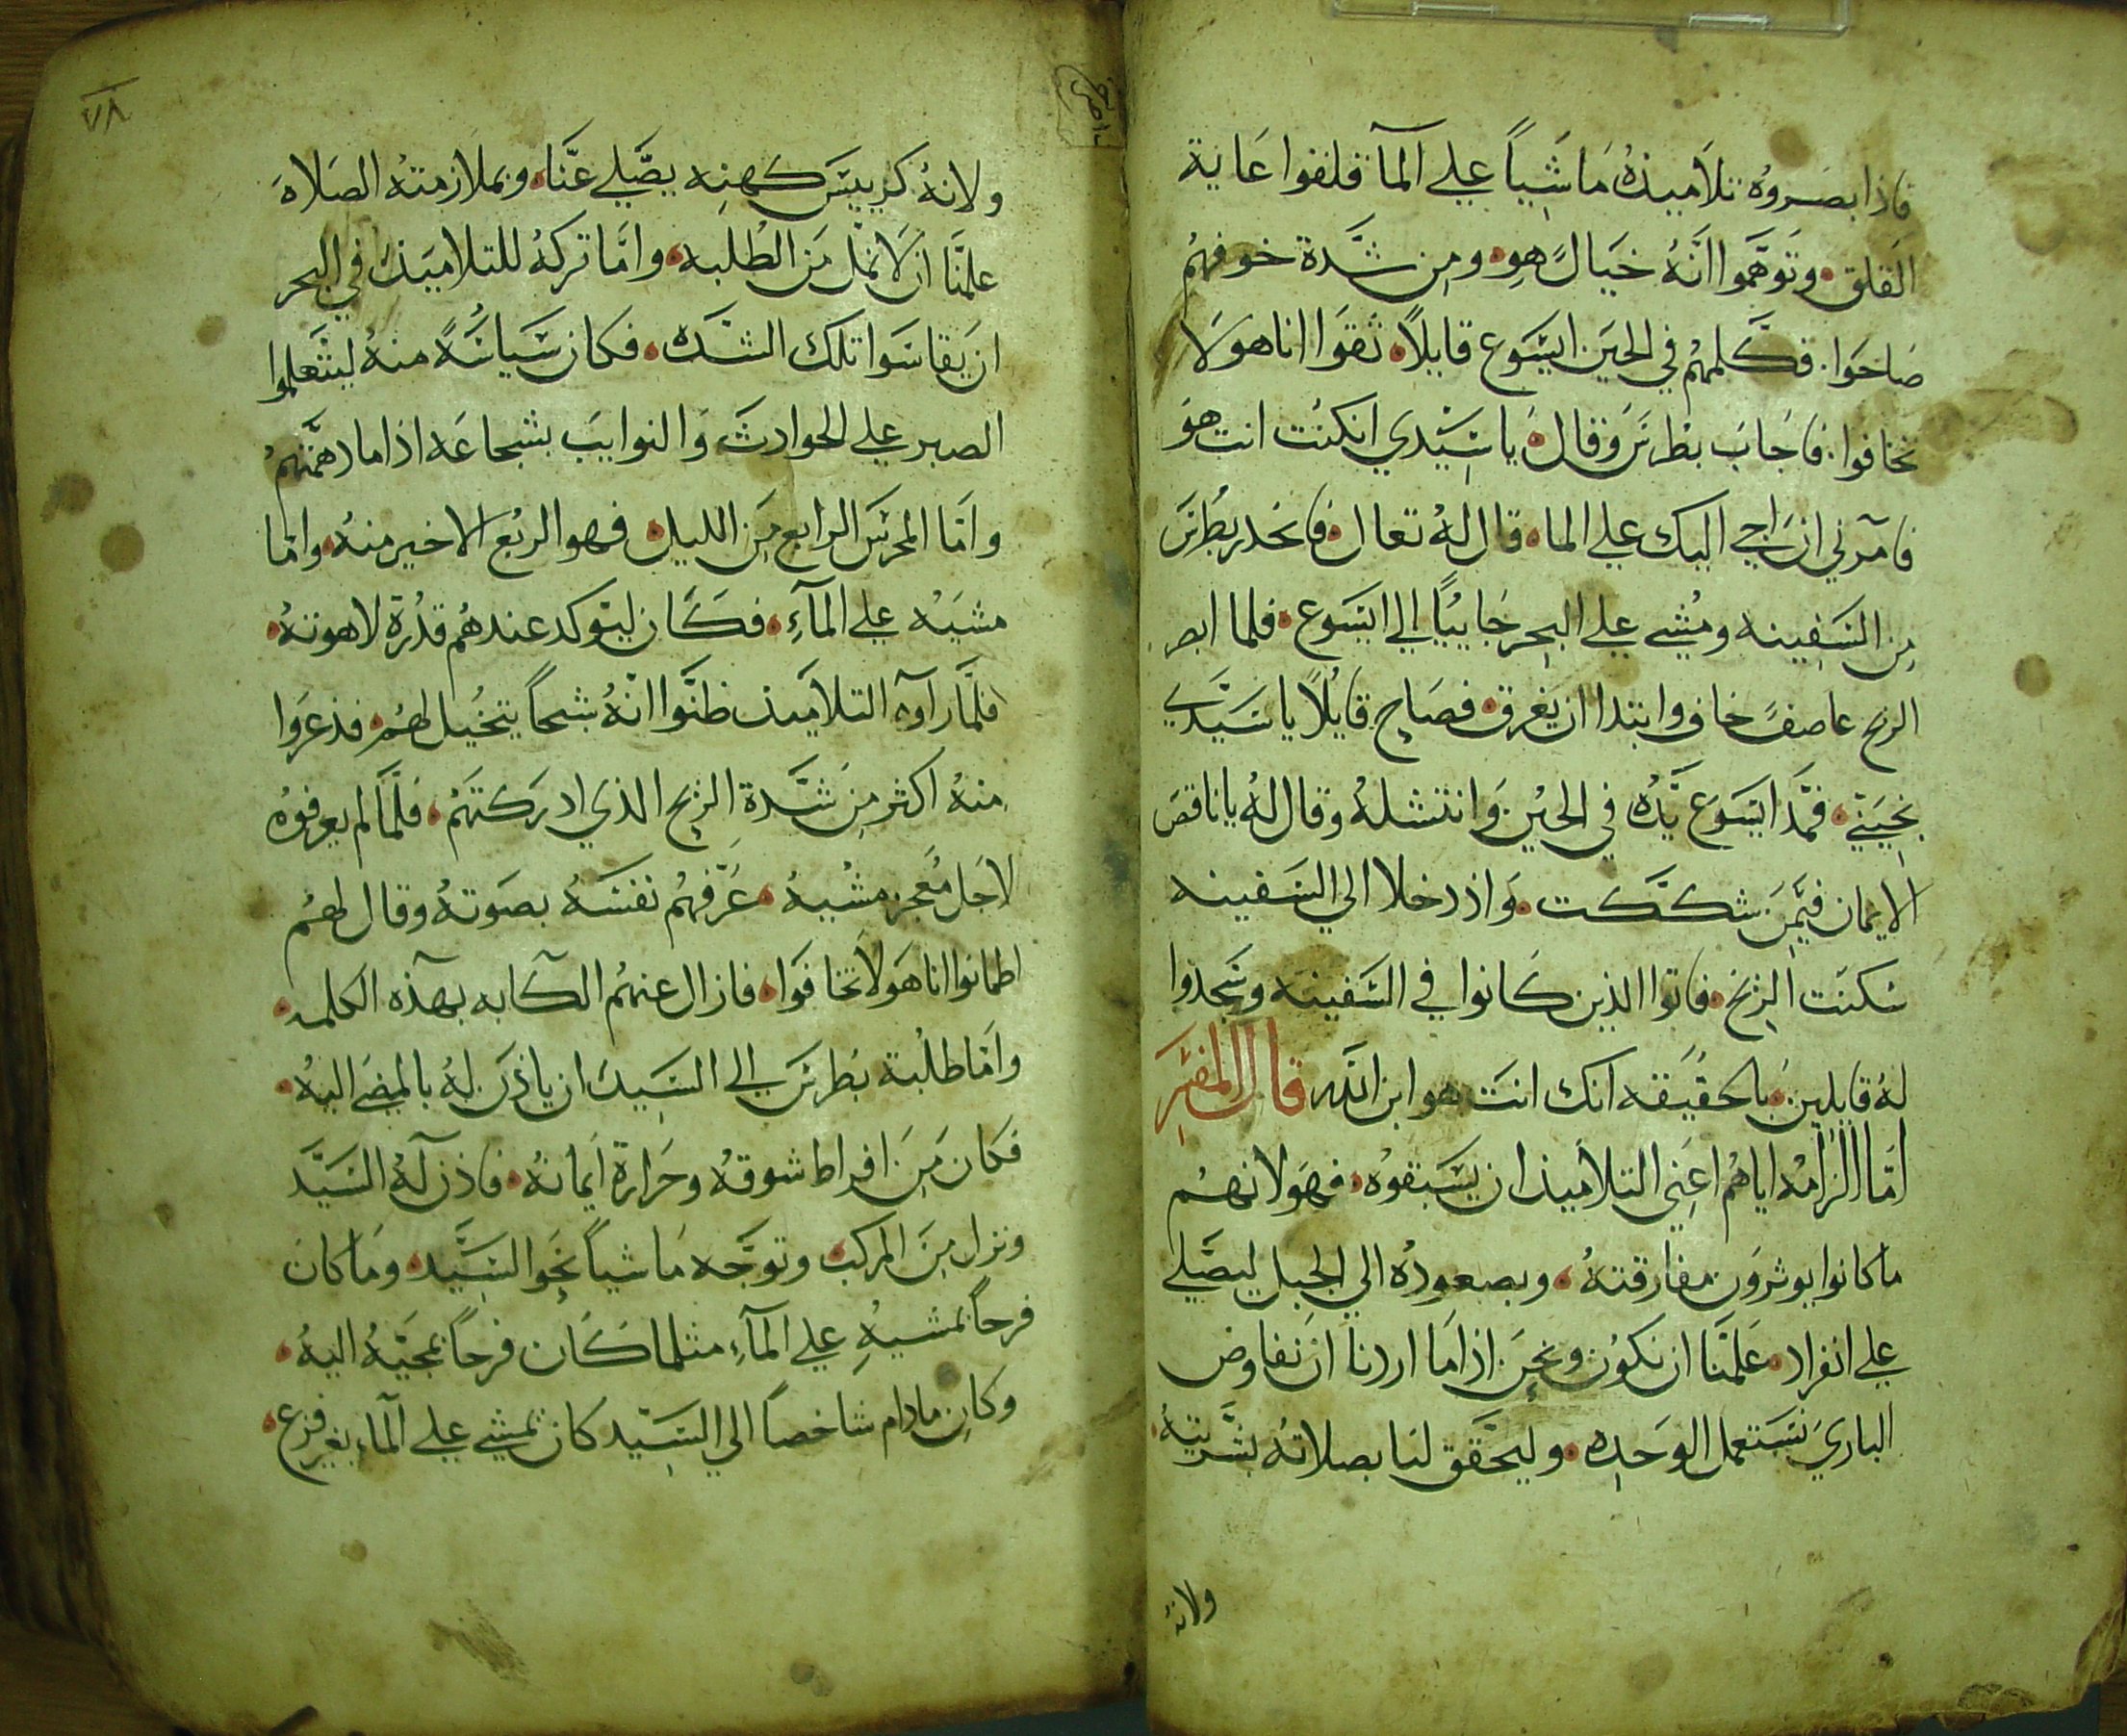 فاذا بصروه تلاميذه ماشياً علي المآ قلقوا غاية
القلق وتوهموا انهُ خيالً هو ومن شدة خوفهم
صاحوا فكلمهم في الحين ايسوع قايلاً ثقوا انا هو لا
تخافوا فاجاب بطرس وقال يا سيدي ان كنت انت هو
فآمرني ان اجي اليك علي الماء قال له تعال فانحدر بطرس
من السفينه ومشي علي البحر جاييًا الي ايسوع فلما ابصر
الريح عاصفً خاف وابتدا ان يغرق فصاح قايلًا يا سيدي
نجيني فمد ايسوع يده في الحين وانتشله وقال له يا ناقص
الايمان فيمن شككت واذ دخلا الي السفينه
سكنت الريح فاتوا الذين كانوا في السفينه وسجدوا
له قايلين بالحقيقه انك انت هو ابن الله قال المفسر
اما الزامه اياهم اعني التلاميذ ان يسبقوه فهو لانهم
ما كانوا يوثرون مفارقته وبصعوده الي الجبل ليصلي
علي انفراد علمنا ان نكون ونحن اذا ما اردنا ان نفاوض
الباري نستعمل الوحده وليحقق لنا بصلاته بشريته
ولانه
٧٨
ولانهُ كرييس كهنه يصلي عنا وبملازمته الصلاه
علمنا ان لا نمل من الطلبه واما تركهُ للتلاميذ في البحر
ان يقاسوا تلك الشده فكان سياسةً منهُ ليتعلموا
الصبر علي الحوادث والنوايب بشجاعه اذا ما دهمتهم
واما المحرس الرابع من الليل فهو الربع الاخير منه واما
مشيه علي المآءِ فكان ليتوكد عندهم قدرة لاهوته
فلما رآوه التلاميذ ظنوا انهُ شبحاً يتخيل لهم فذعروا
منه اكثر من شدة الريح الذي ادركتهم فلما لم يعرفوه
لاجل معجز مشيه عرفهم نفسه بصوته وقال لهم
اطمانوا انا هو لا تخافوا فازال عنهم الكآبه بهذه الكلمه
واما طلبة بطرس الي السيد ان ياذن له بالمضي اليه
فكان من افراط شوقه وحرارة ايمانه فاذن له السيد
ونزل من المركب وتوجه ماشياً نحو السيد وما كان
فرحاً بمشيهِ علي المآءِ مثلما كان فرحاً بمجيه اليه
وكان مادام شاخصاً الي السيد كان يمشي علي المآء بغير فزع